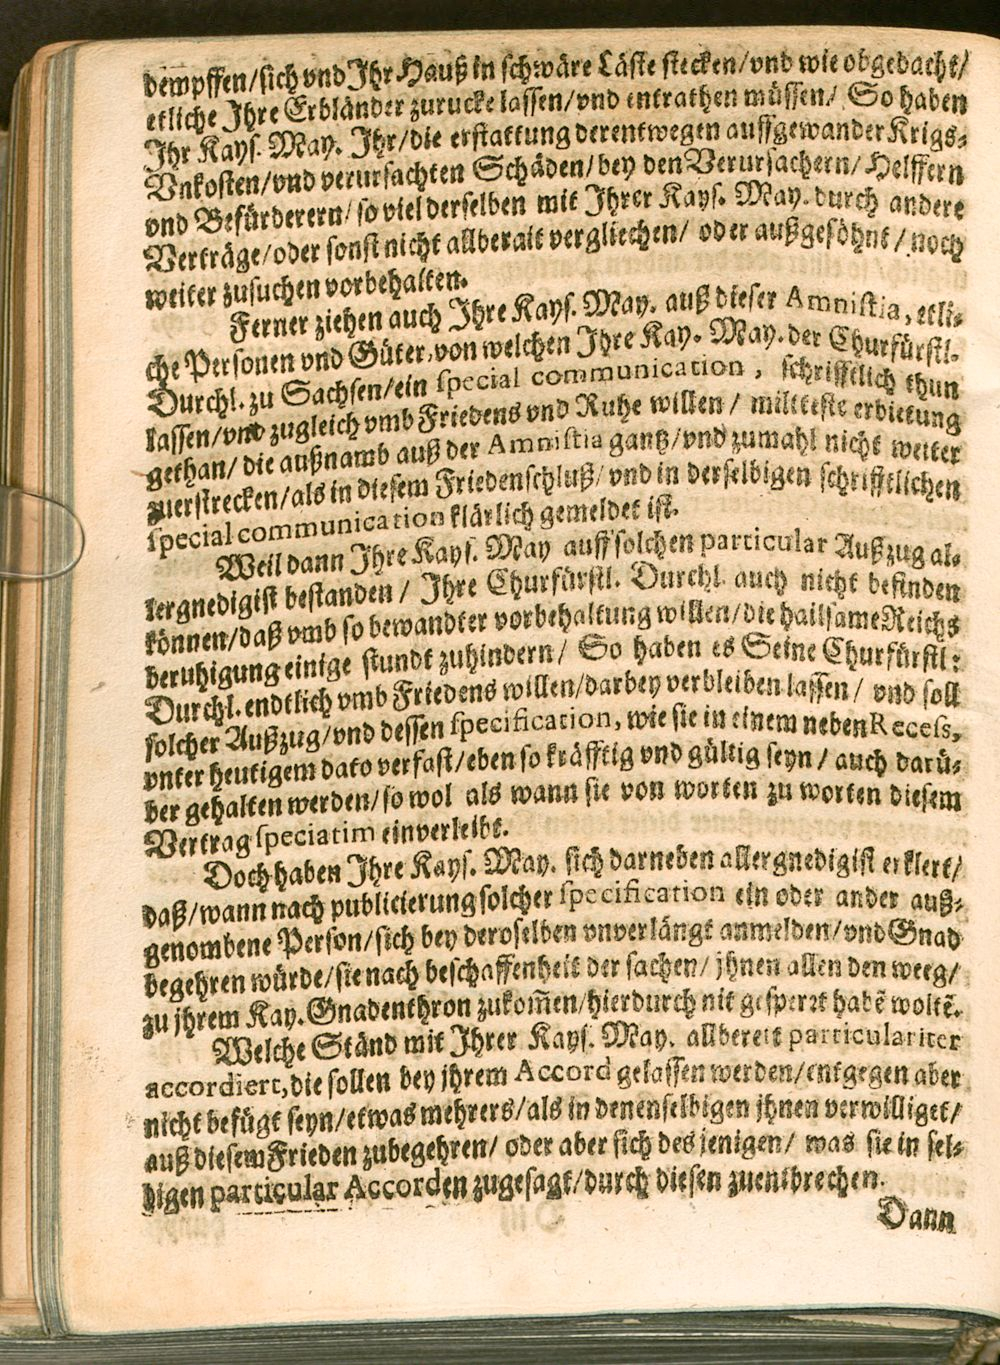 dempffen/sich vnd Jhr Hauß in schwäre Läste stecken/vnd wie obgedacht/
etliche Jhre Erbländer zurucke lassen/vnd entrathen müssen/ So haben
Jhr Kays. May. Jhr/die erstattung derentwegen auffgewander Krigs-
Vnkosten/vnd verursachten Schäden/bey den Verursachern/ Helffern
vnd Befürderern/ so viel derselben mit Jhrer Kays. May. durch andere
Verträge/oder sonst nicht allberait vergliechen/ oder außgesöhnt / noch
weiter zusuchen vorbehalten.
Ferner ziehen auch Jhre Kays. May. auß dieser Amnistia, etli-
che Personen vnd Güter, von welchen Jhre Kay. May. der Churfürstl.
Durchl. zu Sachsen/ein special communication , schrifftlich thun
lassen/vnd zugleich vmb Friedens vnd Ruhe willen / miltteste erbietung
gethan/ die außnamb auß der Amnistia gantz/vnd zumahl nicht weiter
zuerstrecken/als in diesem Friedenschluß/ vnd in derselbigen schrifftlichen
special communication klärlich gemeldet ist.
Weil dann Jhre Kays. May auff solchen particular Außzug al-
lergnedigist bestanden / Jhre Churfürstl. Durchl. auch nicht befinden
können/daß vmb so bewandter vorbehaltung willen/die hailsame Reichs
beruhigung einige stundt zuhindern/ So haben es Seine Churfürstl:
Durchl. endtlich vmb Friedens willen/darbey verbleiben lassen / vnd soll
solcher Außzug/vnd dessen specification, wie sie in einem neben Recess,
vnter heutigem dato verfast/eben so kräfftig vnd gültig seyn / auch darü-
ber gehalten werden/so wol als wann sie von worten zu worten diesem
Vertrag speciatim einverleibt.
Doch haben Jhre Kays. May. sich darneben allergnedigist erklert/
daß/wann nach publicierung solcher specification ein oder ander auß-
genombene Person/sich bey deroselben vnverlängt anmelden/vnd Gnad
begehren würde/sie nach beschaffenheit der sachen/ jhnen allen den weeg/
zu jhrem Kay. Gnadenthron zukom̄en/hierdurch nit gesperrt habẽ woltẽ.
Welche Ständ mit Jhrer Kays. May. allbereit particulariter
accordiert, die sollen bey jhrem Accord gelassen werden/entgegen aber
nicht befügt seyn/etwas mehrers/als in denenselbigen jhnen verwilliget/
auß diesem Frieden zubegehren/ oder aber sich des jenigen/ was sie in sel-
bigen particular Accorden zugesagt/durch diesen zuentbrechen.
Dann